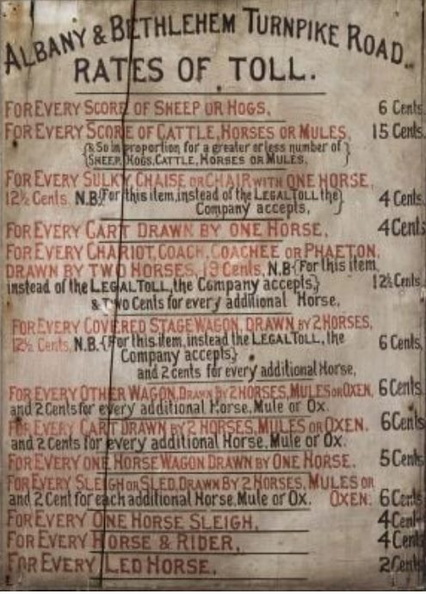 ALBANY & BETHLEHEM TURNPIKE ROAD.
RATES OF TOLL.
FOR EVERY SCORE OF SHEEP OR HOGS, 6 Cents.
FOR EVERY SCORE OF CATTLE, HORSES OR MULES, 15 Cents.
{& So in proportion for a greater or less number of
SHEEP, HOGS, CATTLE, HORSES OR MULES.}
FOR EVERY SULKY, CHAISE OR CHAIR WITH ONE HORSE,
12½ Cents. N.B.{For this item, instead of the LEGAL TOLL the
Company accepts,} 4 Cents.
FOR EVERY CART DRAWN BY ONE HORSE, 4 Cents
FOR EVERY CHARIOT, COACH, COACHEE OR PHAETON,
DRAWN BY TWO HORSES, 19 Cents, N.B.{For this item,
instead of the LEGAL TOLL, the Company accepts,} 12½ Cents.
& Two Cents for every additional Horse,
FOR EVERY COVERED STAGE WAGON, DRAWN BY 2 HORSES,
12½ Cents, N.B.{For this item, instead the LEGAL TOLL, the
Company accepts,} 6 Cents,
and 2 cents for every additional Horse,
FOR EVERY OTHER WAGON, DRAWN BY 2 HORSES, MULES OR OXEN, 6 Cents.
and 2 Cents for every additional Horse, Mule or Ox.
FOR EVERY CART DRAWN BY 2 HORSES, MULES OR OXEN. 6 Cents
and 2 Cents for every additional Horse, Mule or Ox.
FOR EVERY ONE HORSE WAGON DRAWN BY ONE HORSE. 5 Cents
FOR EVERY SLEIGH OR SLED, DRAWN BY 2 HORSES, MULES OR
and 2 Cent for each additional Horse, Mule or Ox. OXEN. 6 Cents
FOR EVERY ONE HORSE SLEIGH, 4 Cent
FOR EVERY HORSE & RIDER, 4 Cent
FOR EVERY LED HORSE. 2 Cents